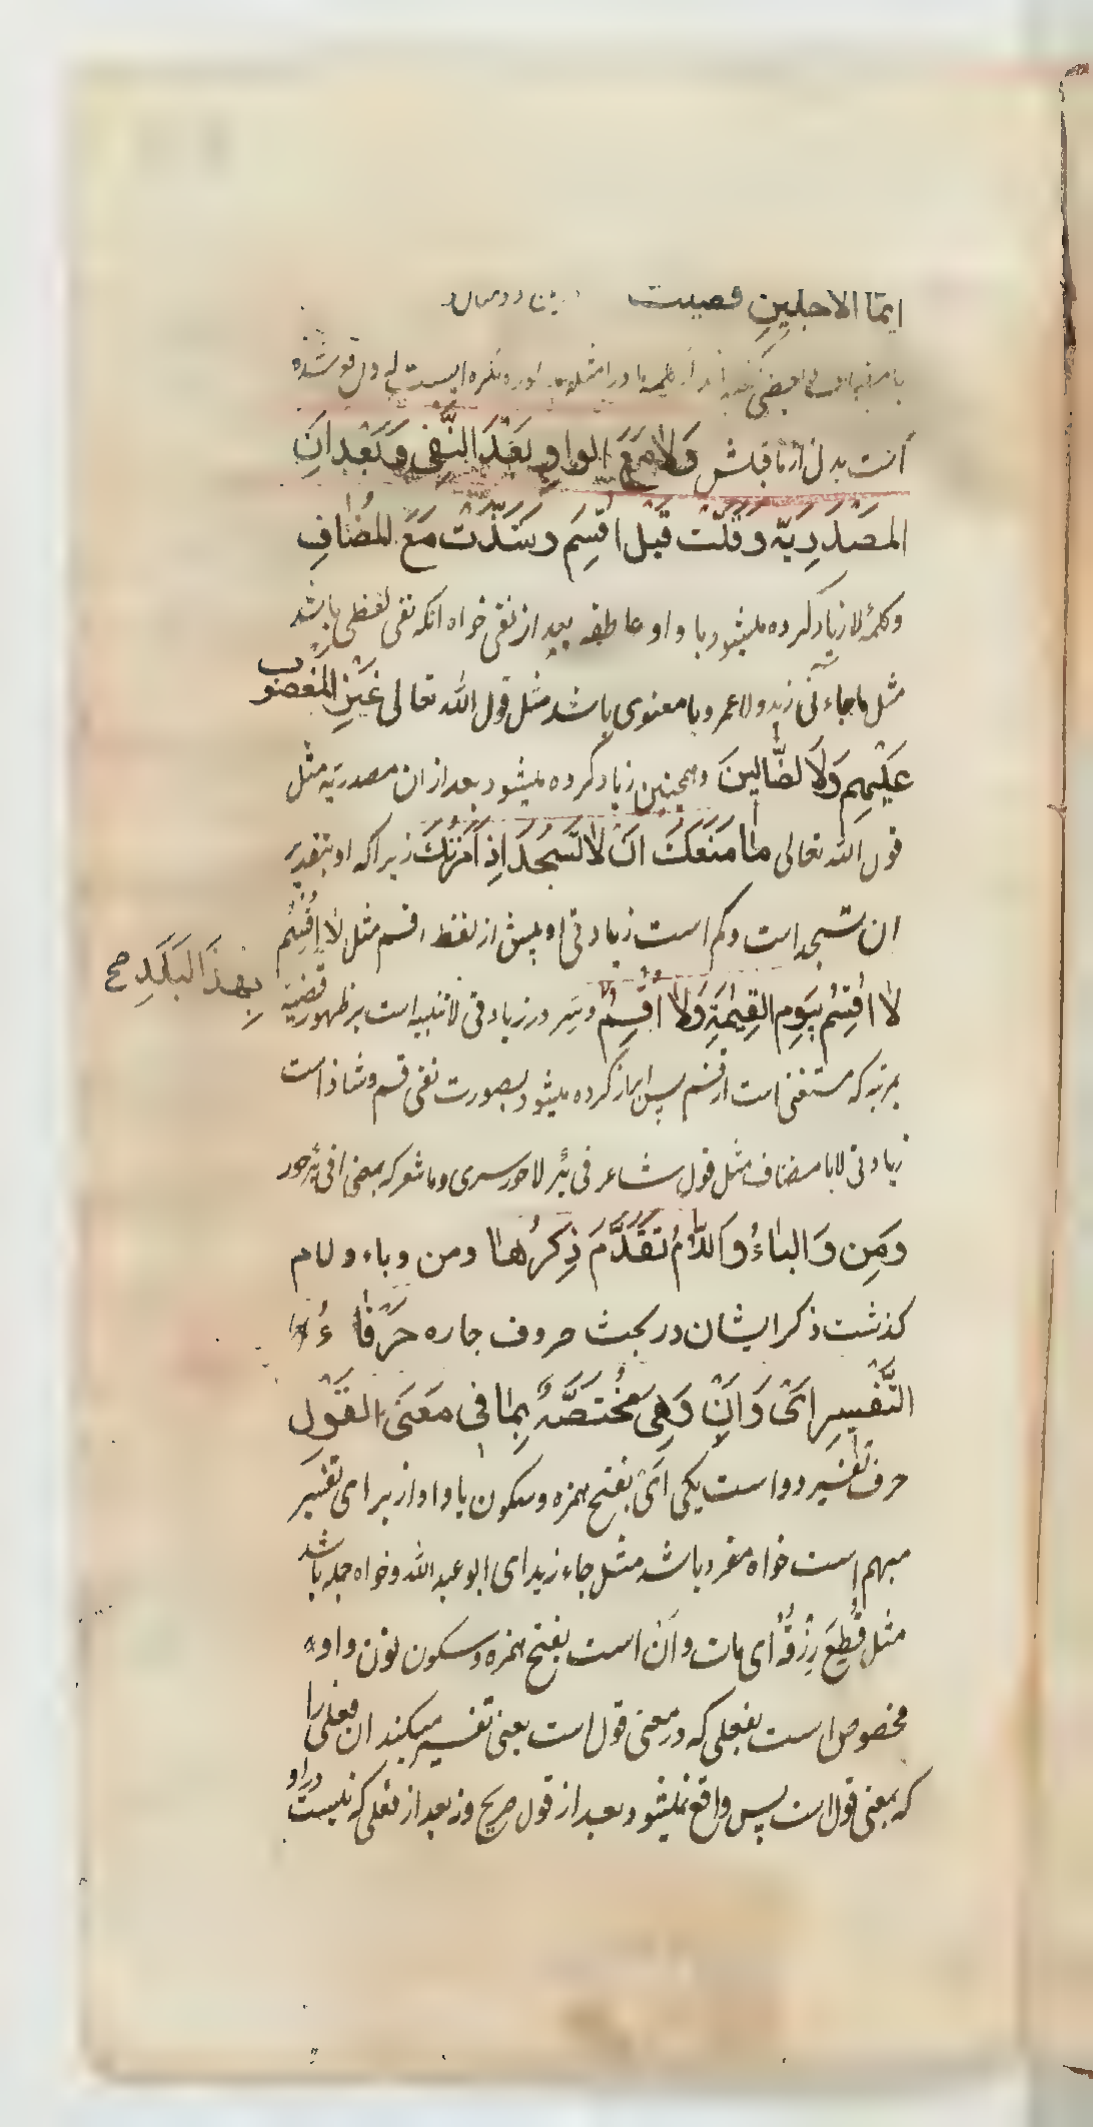 ایّما الاجلین قضیت
أنست بدل از ما قبلش وَلا مَعَ الواوِ بَعْدَ النَّفی وَ بَعْدَ اَنِ
المَصْدَرِیَّه وَ قَلَّتْ قَبْلَ اُقْسِمَ وَ شَذَّتْ مَعَ المُضافِ
وکلمهٔ لا زیاد کرده میشود با واو عاطفه بعد از نفی خواه انکه نفی لفظی باشد
مثل ما جاءنی زید ولا عمرو یا معنوی باشد مثل قول الله تعالی غَیْرِ المَغضوب
عَلَیْهِم وَلَا لضَّالینَ و همچنین زیاد کرده میشود بعد از ان مصدریّه مثل
قول الله تعالی ما مَنَعَکَ اَنْ لا تَسْجُدَ اِذ اَمَرْتُکَ زیرا که او بتقدیر
ان تسجد است وکم است زیادتی او پیش از لفظ اقسم مثل لا اُقْسِمُ
بِهذَا البَلَدِ صح
لا اُقْسِمُ بِیَومِ القِیٰمَةِ وَلا اُقْسِمُ وسِر در زیادتی لا تنبیه است بر ظهور قضیّه
بمرتبه که مستغنی است از قسم پس ابراز کرده میشود بصورت نفی قسم وشاذ است
زیادتی لا با مضاف مثل قول شاعر فی بئر لا حور سری وما شعر که بمعنی فی بئر حور
وَمِن وَالباءُ وَاللّامُ تَقَدَّمَ ذِکرُها ومن وباء ولام
کذشت ذکر ایشان در بحث حروف جاره حَرْفا
التَّفْسیرِ اَیْ وَ اَنْ وَ هِیَ مُخْتَصَّةٌ بِما فی مَعْنَی القَوْلِ
حرف تفسیر دو است یکی اَیْ بفتح همزه وسکون یا واو از برای تفسیر
مبهم است خواه مفرد باشد مثل جاء زید ای ابو عبد الله وخواه جمله باشد
مثل قُطِعَ رِزْقُهُ ای مات و اَنْ است بفتح همزه وسکون نون واو
مخصوص است بفعلی که در معنی قول است یعنی تفسیر میکند ان فعلی را
که بمعنی قول است پس واقع نمیشود بعد از قول صریح ونه بعد از فعلی که نیست در او